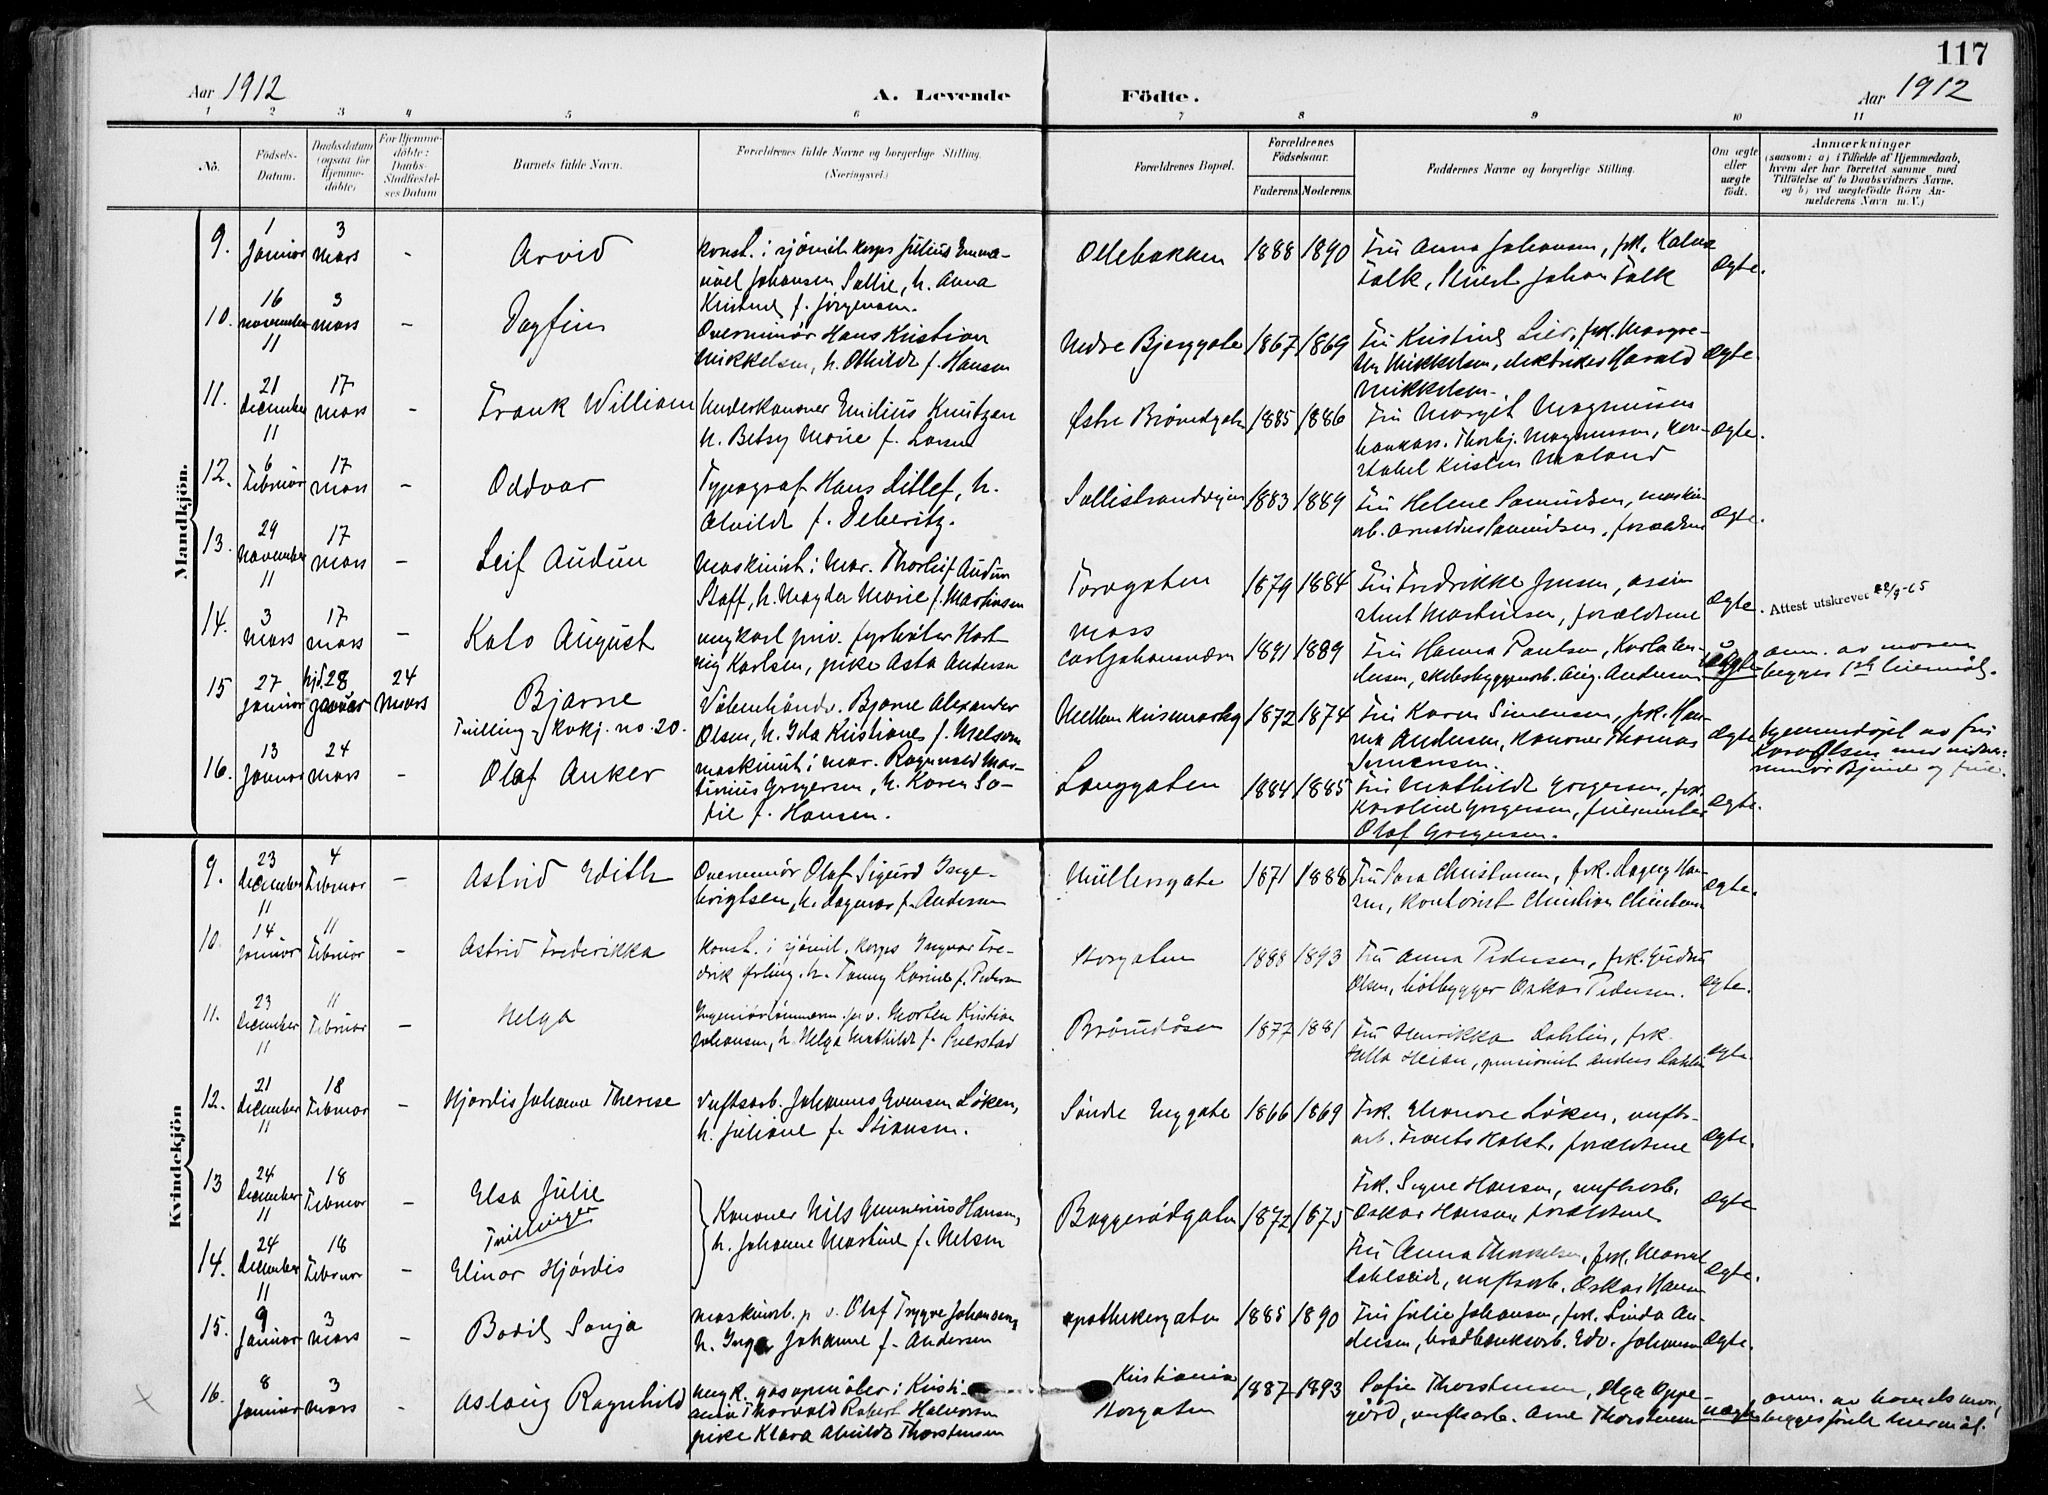 117
Aar 1912
A. Levende Födte.
Aar 1912
1 2 3 4 5 6 7 8 9 10 11
No.
Födsels-Datum.
Daabsdatum (ogsaa for Hjemme-döbte)
For Hjemme-döbte: Daabs-Stadfæstel-ses Datum
Barnets fulde Navn.
Forældrenes fulde Navne og borgerlige Stilling. (Næringsvei.)
Forældrenes Bopæl.
Forældrenes Födselsaar.
Faderens. Moderens.
Faddernes Navne og borgerlige Stilling.
Om ægte eller uægte födt.
Anmærkninger
(saasom: a) i Tilfælde af Hjemmedaab,
hvem der har forrettet samme med
Tilföielse af to Daabsvidners Navne.
og b) ved uægtefödte Börn An-
melderens Navn m.V.)
Mandkjön.
9. 1 Januar 3 Mars - Arvid
konst. i sjömil. korps Julius Emma-
nuel Johansen Sollie, h. Anna
Kristine f. Jörgensen.
Ollebakken 1888 1890
Fru Anna Johansen, frk. Kalva
Falk, Johan Falk
Ægte.
10. 16 November 11 3 Mars - Dagfin
Overminör Hans Kristian
Mikkelsen, h. Othilde f. Hansen
Nedre Bjerggate 1867 1869
Fru Kristine Lier, frk. Margre-
the Mikkelsen, elektriker Harald
Mikkelsen.
Ægte.
11. 21 December 11 17 Mars - Frank William
Underkanoner Emilius Knutzen
h. Betsy Marie f. Larsen
Østre Bröndgate 1885 1886
Fru Margit Magnussen
Thorbj. Magnussen, kon-
stabel Kristen
Ægte.
12. 6 Februar 17 Mars - Oddvar
Typograf Hans Lillef, h.
Alvilde f. Deberitz.
Sollistrandveien 1883 1889
Fru Helene Samuelsen, maskin-
arb. Arnoldus Samuelsen, forældrene
Ægte.
13. 29 November 11 17 Mars - Leif Audun
Maskinist i Mar. Thorleif Audun
Staff, h. Magda Marie f. Martinsen
Torvgaten 1879 1884
Fru Fredrikke Jensen,
Martinsen, forældrene
Ægte.
Attest utskrevet 22/9-65
14. 3 Mars 17 Mars - Kato August
ungkarl priv. fyrböter Hart-
vig Karlsen, pike Asta Andersen
Moss
Carljohansværn 1891 1889
Fru Hanna Paulsen, Karla An-
dersen, skibsbyggerarb. Aug. Andersen
uægte
anm. av moren
begges 1ste leiermål.
15 27 Januar hjd. 28 Januar 24 Mars Bjarne
Tvilling f. kvkj. no. 20.
Våbenhåndv. Bjarne Alexander
Olsen, h. Ida Kristiane f. Melsom
1872 1874
Fru Karen Simensen, frk. Han-
na Andersen, kanoner Thomas
Simensen.
Ægte
hjemmedøpt av fru
Olsen med
16. 13 Januar 24 Mars - Olaf Anker
maskinist i mar. Ragnvald Mar-
tinius Gregersen, h. Karen So-
fie f. Hansen.
Langgaten 1884 1885
Fru Mathilde Gregersen, frk.
Karoline Gregersen, fyrmester
Olaf Gregersen.
Ægte.
Kvindekjön
9. 23 December 11 4 Februar - Astrid Edith
Overminör Olaf Sigurd Inge-
brigtsen, h. Dagmar f. Andersen
Müllersgate 1871 1888
Fru Sara Christensen, frk. Dagny Han-
sen, kontorist Christian Christensen
Ægte.
10. 14 Januar 11 Februar - Astrid Frederikka
konst. i sjömil. korps Ingvar Fre-
drik Erling, h. Fanny Karine f. Pedersen
Storgaten 1888 1893
Fru Anna Pedersen, frk. Gudrun
Olsen, båtbygger Oskar Pedersen.
Ægte.
11. 23 December 11 11 Februar - Helga
Ingeniörtömmerm. p.v. Morten Kristian
Johansen, h. Helga Mathilde f.
Bröndåsen 1877 1881
Fru Henrikka Dahlin, frk.
Hulla Heier, pensionist Anders Dahlin
Ægte.
12. 21 December 11 18 Februar - Hjördis Johanne Therese
Verftsarb. Johannes Evensen Löken,
h. Juliane f. Stiansen.
Söndre Enggate 1866 1869
Frk. Elenore Löken, verfts-
arb. Frants Holst, forældrene
Ægte.
13 24 December 11 18 Februar - Elsa Julie
Tvillinger
Kanoner Nils Gunnerius Hansen,
h. Johanne Martine f. Nelsen
Baggerödgaten 1872 1875
Frk. Signe Hansen, verftsarb.
Oskar Hansen, forældrene
Ægte
14. 24 December 11 18 Februar - Elinor Hjördis
Fru Anna Thorkelsen, frk.
verftsarb. Oskar Hansen
Ægte.
15. 9 Januar 3 Mars - Bodil Sonja
maskinarb. p v. Olaf Trygve Johansen,
h. Inga Johanne f. Andersen
Apothekergaten 1885 1890
Fru Julie Johansen, frk. Linda An-
dersen, Edv. Johansen
Ægte.
16. 8 Januar 3 Mars - Aslaug Ragnhild
ungk. gasopmåler i Kristi-
ania Thorvald Robert Halvorsen
pike Klara Alvilde Thorstensen
Kristiania
Storgaten 1887 1893
Sofie Thorstensen, Olga Oppe-
gård, verftsarb. Arne Thorstensen
uægte
anm. av barnets mor,
begges förste leiermål.